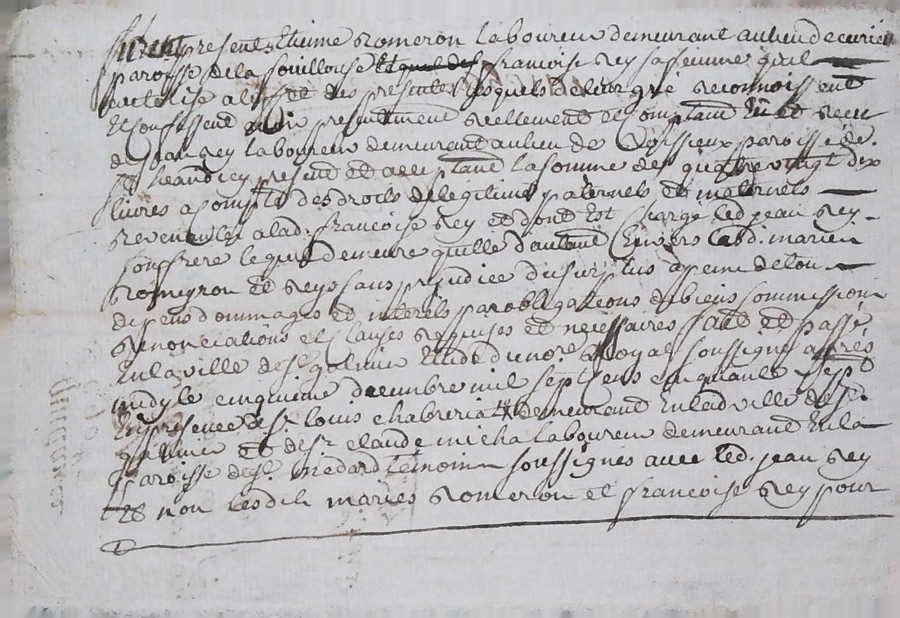 furent presents Etienne Romeron laboureur demeurant au lieu de curieu
paroisse de la fouillouse et francoise Rey sa femme quil
authorise a leffet des presentes lesquels de leur gré reconnoissent
Et Confessent avoir presentement reellement et Comptant Eu et recu
de jean rey laboureur demeurant au lieu de paroisse de
St heand icy present et acceptant la somme de quatre vingt dix
livres a compte des droits de legitime paternels et maternels
revenants a lad. francoise Rey et dont Est Charge led. jean Rey
son frere lequel demeure quitte dautant Envers lesd. maries
Romeyron et Rey sans prejudice du surplus a peine de tou
depens dommages et interets par obligations de biens soumissions
renonciations et Clauses requises et necessaires fait et passé
En la ville de st galmier Etude du nore Royal soussigné apres
midy le cinquieme decembre mil sept Cens cinquante sept
En presence de sr louis chabrerias demeurant En lad ville de st
galmier et de sr claude micha laboureur demeurant En la
paroisse de st medard temoins soussignes avec led. jean Rey
Et non lesdits maries Romeron et francoise Rey pour